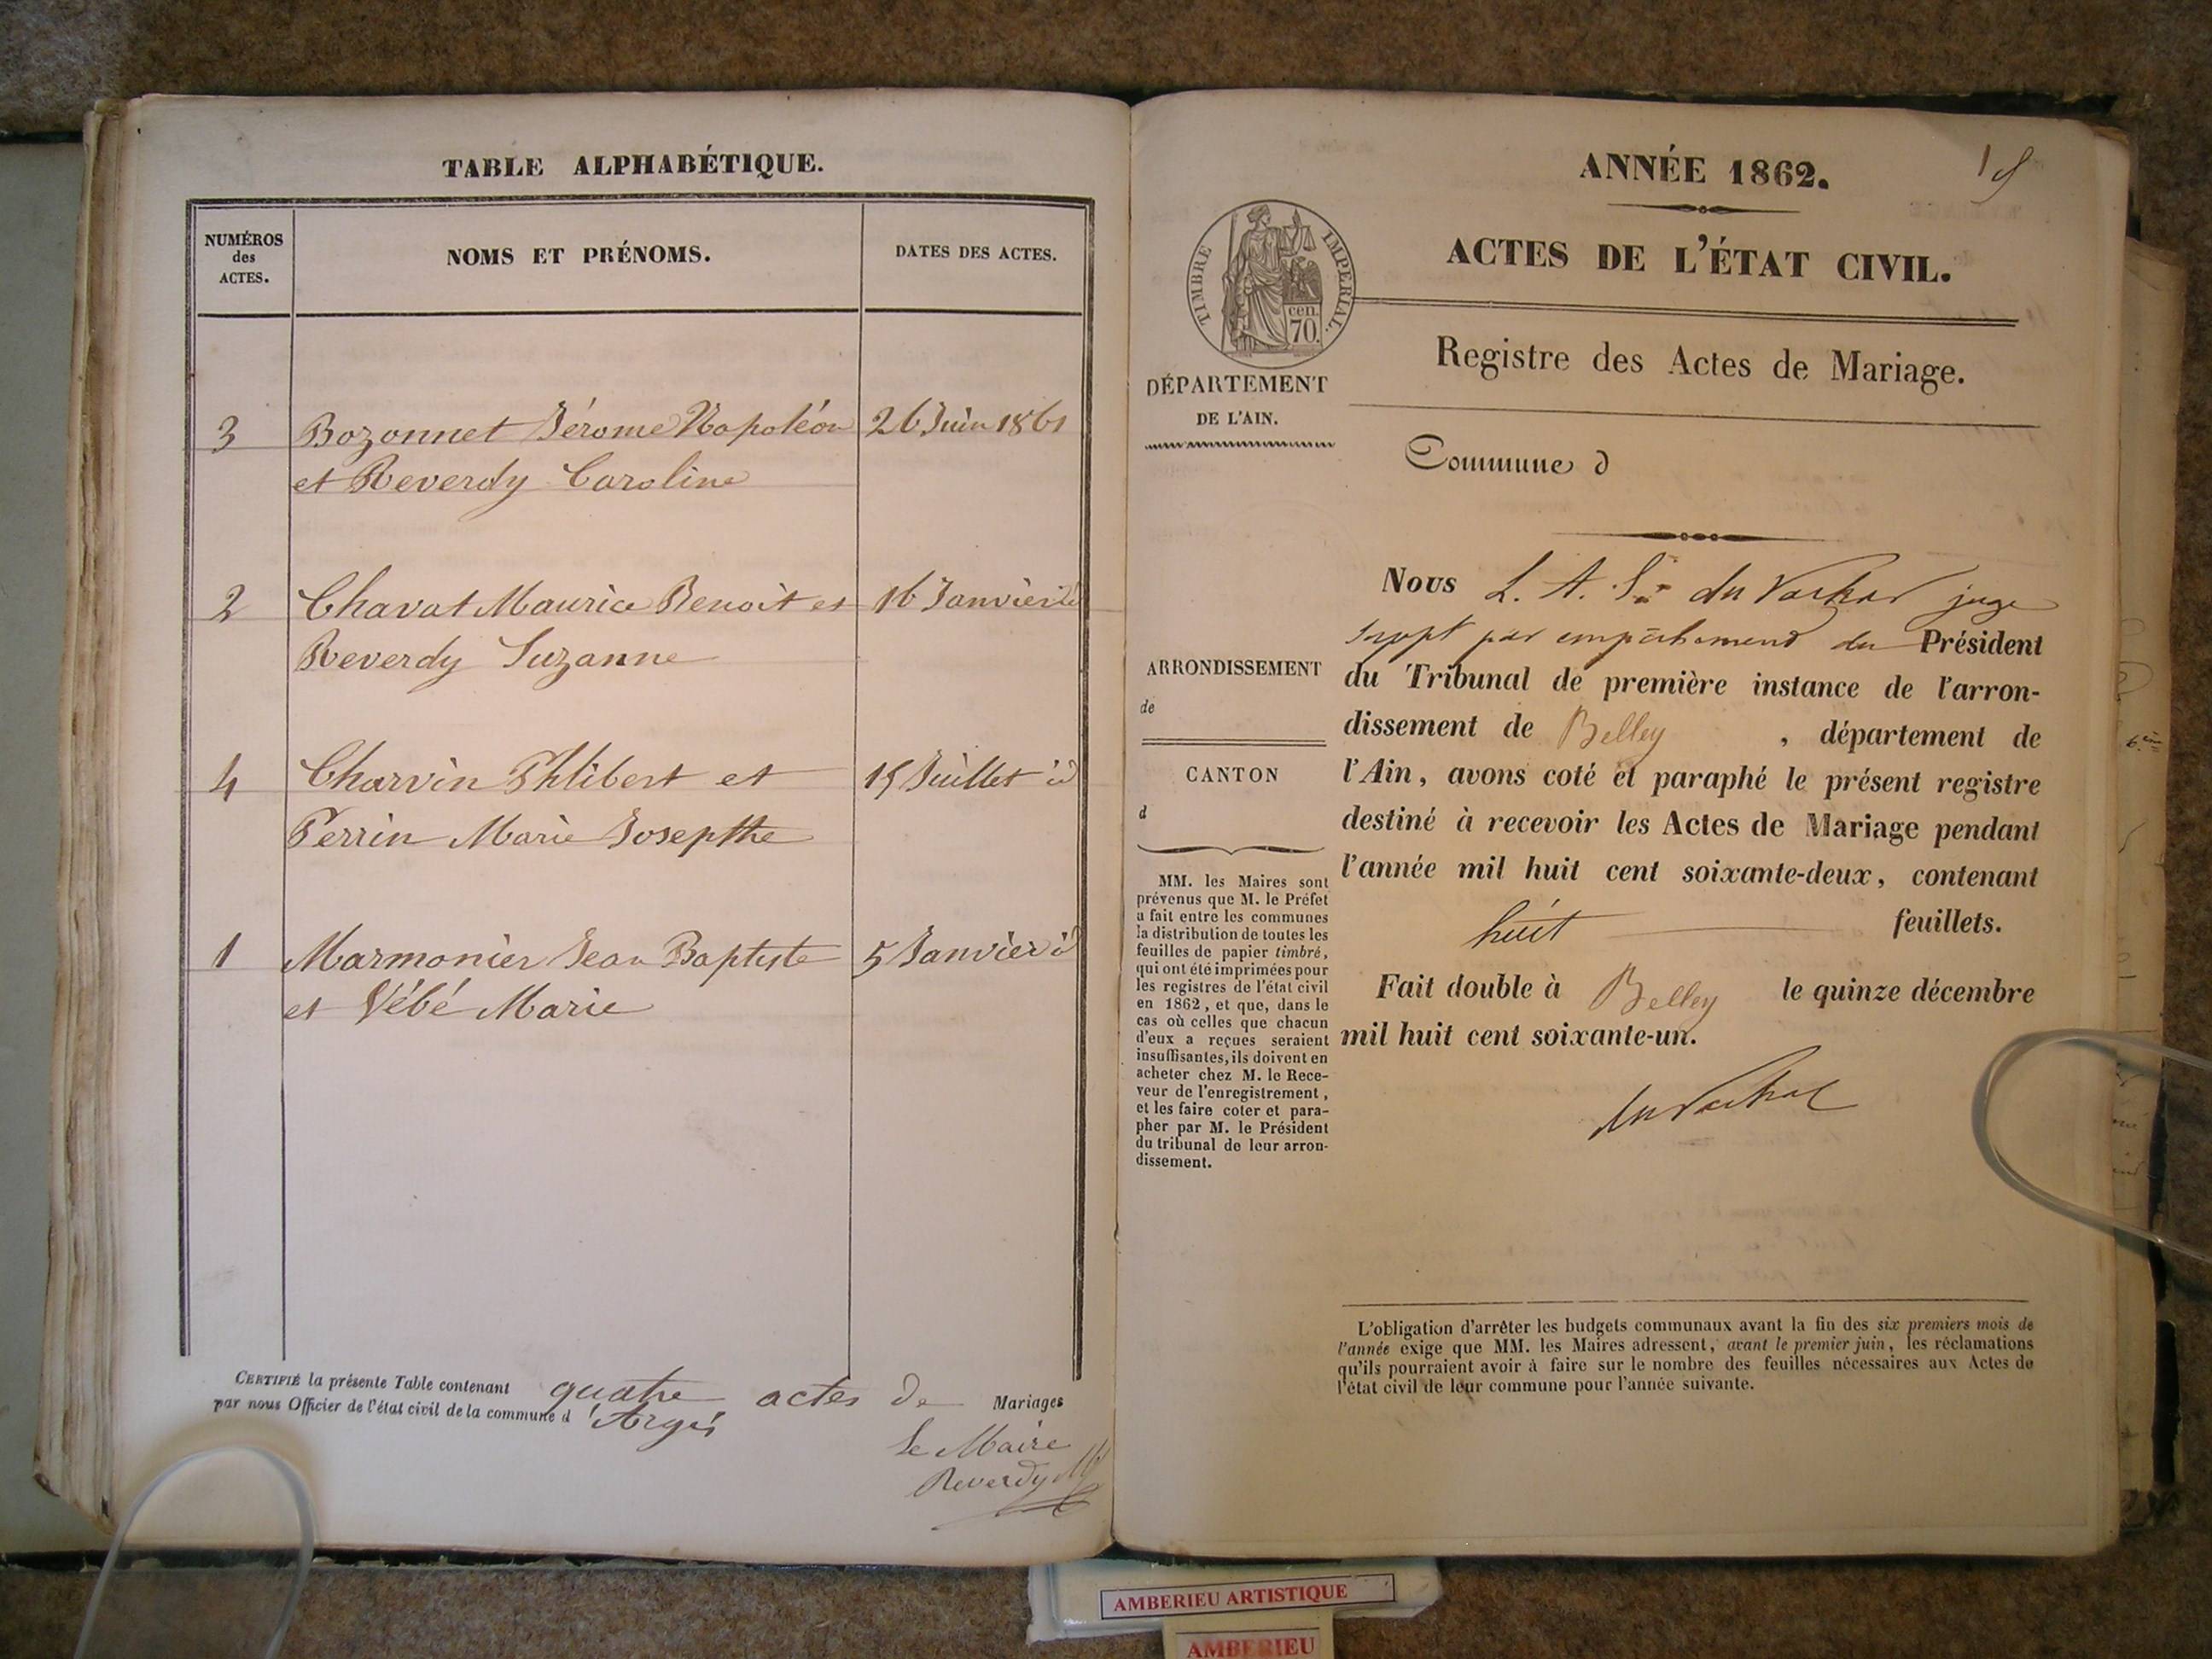 TABLE ALPHABÉTIQUE.
NUMÉROS
des
ACTES.
NOMS ET PRÉNOMS.
DATES DES ACTES.
3 Bozonnet Jérome Napoléon 26 Juin 1861
et Reverdy Caroline
2 Chavat Maurice Benoit et 16 Janvier id
Reverdy Suzanne
4 Charvin Phlibert et 15 Juillet id
Perrin Marie Josepthe
1 Marmonier Jean Baptiste 5 Janvier id
et Vébé Marie
CERTIFIÉ la présente Table contenant quatre actes de Mariages
par nous Officier de l'état civil de la commune d'Argis
Le Maire
Reverdy
ANNÉE 1862.
ACTES DE L'ÉTAT CIVIL.
TIMBRE IMPÉRIAL.
cen.
70.
DÉPARTEMENT
DE L'AIN.
Registre des Actes de Mariage.
Commune d
ARRONDISSEMENT
de
CANTON
d
MM. les Maires sont
prévenus que M. le Préfet
a fait entre les communes
la distribution de toutes les
feuilles de papier timbré,
qui ont été imprimées pour
les registres de l'état civil
en 1862, et que, dans le
cas où celles que chacun
d'eux a reçues seraient
insuffisantes, ils doivent en
acheter chez M. le Rece-
veur de l'enregistrement,
et les faire coter et para-
pher par M. le Président
du tribunal de leur arron-
dissement.
Nous L. A. du juge
par empêchement du Président
du Tribunal de première instance de l'arron-
dissement de Belley, département de
l'Ain, avons coté et paraphé le présent registre
destiné à recevoir les Actes de Mariage pendant
l'année mil huit cent soixante-deux, contenant
huit feuillets.
Fait double à Belley le quinze décembre
mil huit cent soixante-un.
L'obligation d'arrêter les budgets communaux avant la fin des six premiers mois de
l'année exige que MM. les Maires adressent, avant le premier juin, les réclamations
qu'ils pourraient avoir à faire sur le nombre des feuilles nécessaires aux Actes de
l'état civil de leur commune pour l'année suivante.
AMBERIEU ARTISTIQUE
AMBERIEU